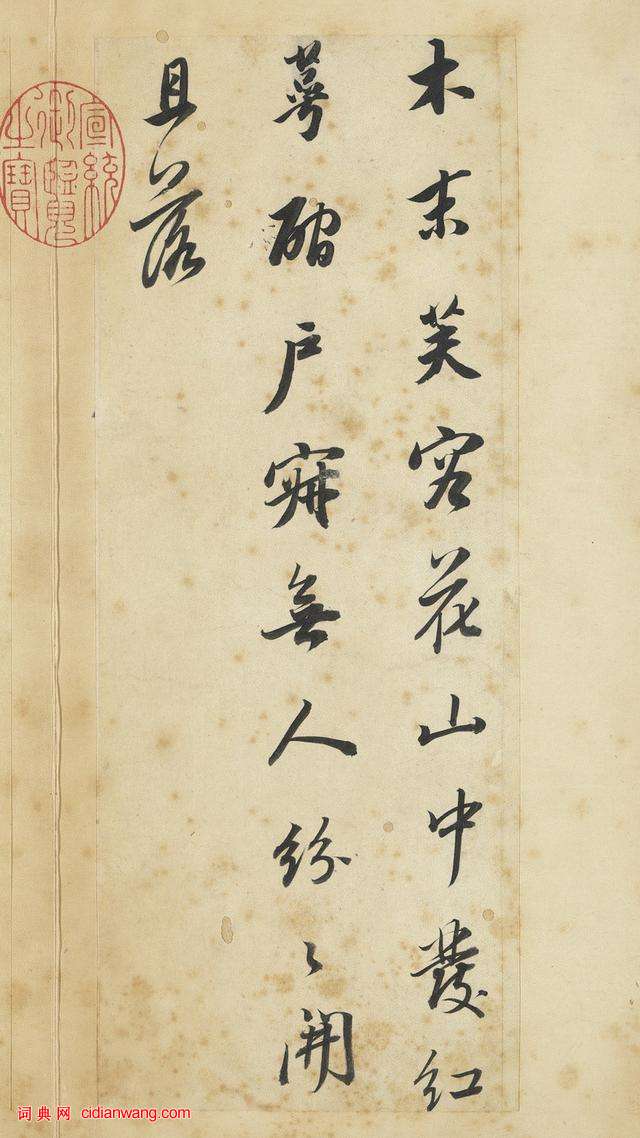 木末芙容花山中發紅
萼磵戶寂無人紛〻開
且落
宣統御覽之寶
词典网 cidianwang.com